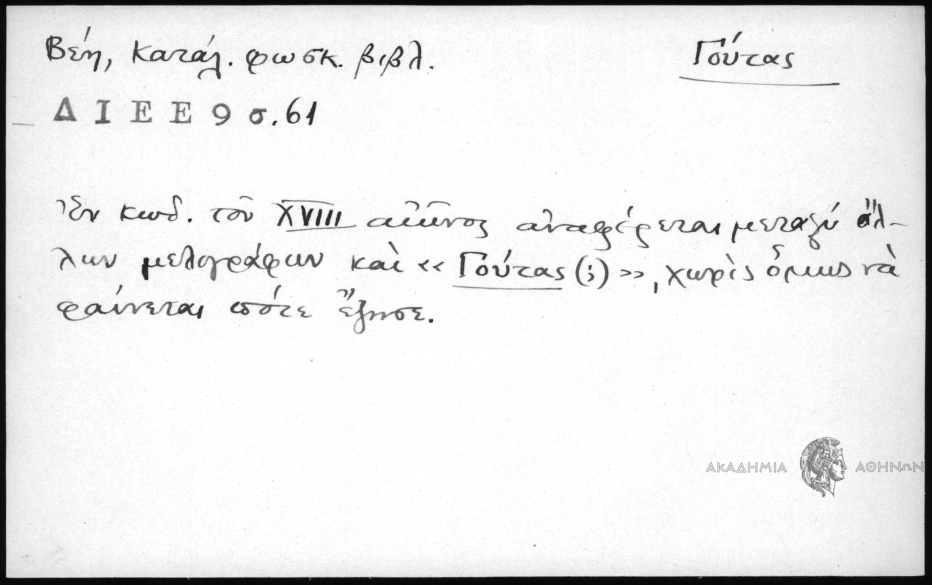 Βέη, Κατάλ. φωσκ. βιβλ.
Γούτας
Δ Ι Ε Ε 9 σ. 61
Ἐν κωδ. τοῦ XVIII αἰῶνος ἀναφέρεται μεταξὺ ἄλ-
λων μελογράφων καὶ « Γούτας (;) », χωρὶς ὅμως νὰ
φαίνεται πότε ἔζησε.
ΑΚΑΔΗΜΙΑ ΑΘΗΝΩΝ